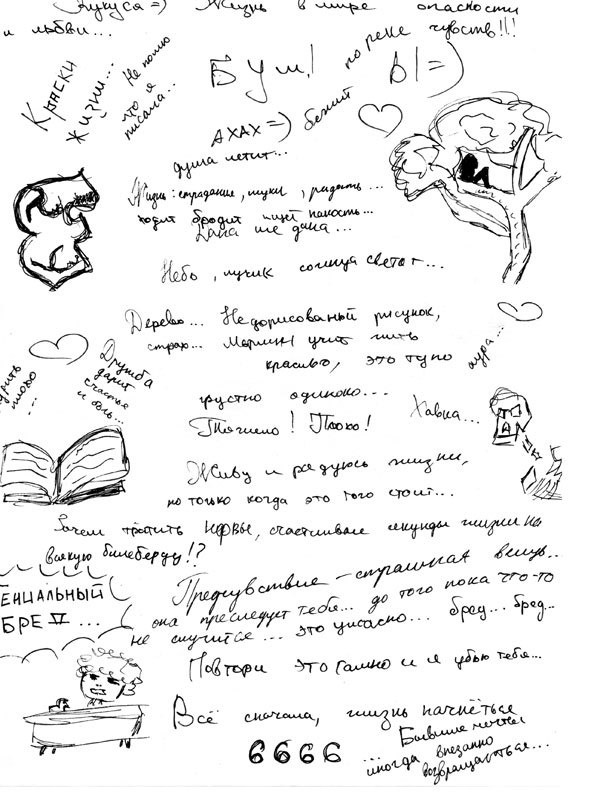 Кукуса=) Жизнь в мире опасности
и любви...
по реке чувств!!!
Бум!
Ы=)
Краски
жизни...
Не помню
что я
писала...
АХАХ=)
бежит
душа летит...
Жизнь: страдание, муки, радость...
ходит бродит ищет
Небо, лучик солнца свет...
Дерево... Недорисованый рисунок,
страх... учит пить
красиво, это тупо
аура...
Дружба
дарит
счастье
и боль...
грустно одиноко...
Тягнело! Плохо!
Хавка...
Живу и радуюсь жизни,
но только когда это того стоит...
Зачем тратить нервы, счастливые секунды жизни на
всякую билеберду!?
Предчувствие - страшная вещь...
она преследует тебя... до того пока что-то
не случится... это ужасно... бред... бред...
ЕНИАЛЬНЫЙ
БРЕД...
Повтори это и я убью тебя...
Всё сначала, жизнь начнёться
6666
Бывшие мечты
...иногда внезапно
возвращаються...